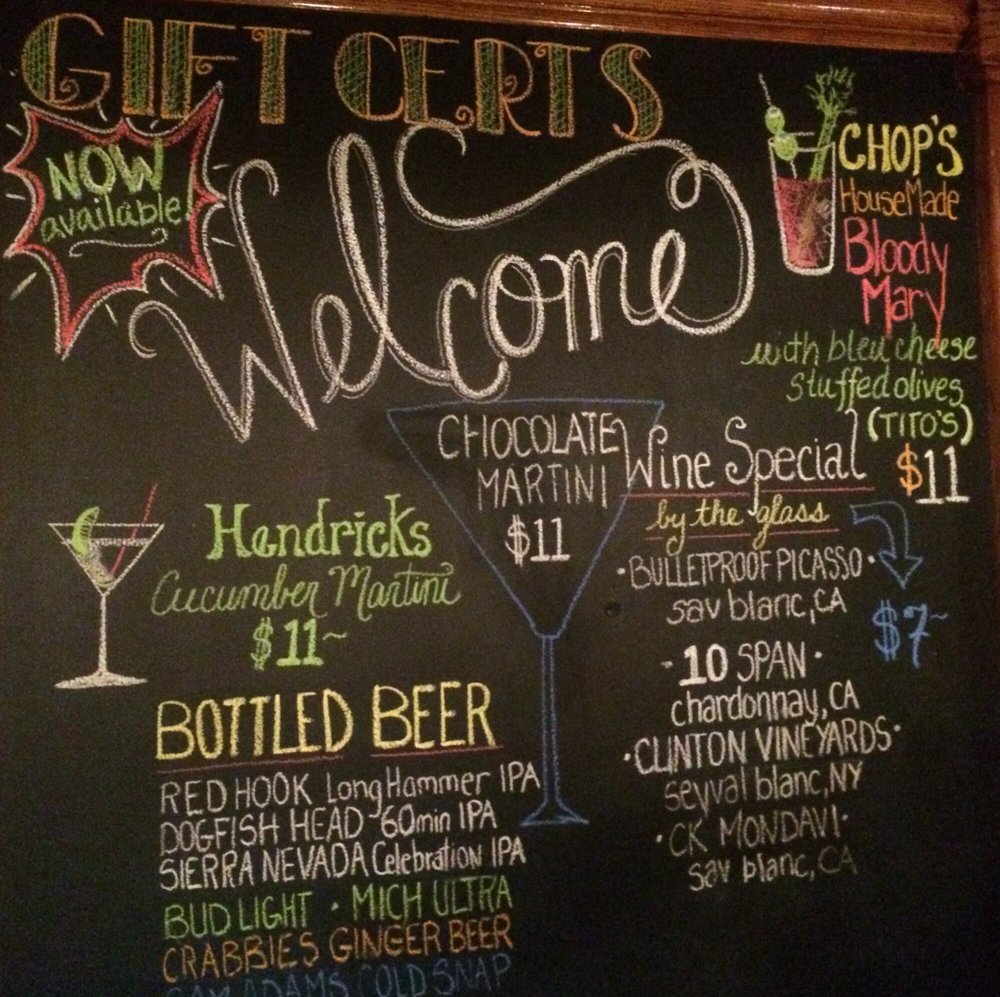 GIFT CERTS
NOW
available!
Welcome
CHOP'S
HouseMade
Bloody
Mary
with bleu cheese
stuffed olives
(TITO'S)
$11
CHOCOLATE
MARTINI
$11
Wine Special
by the glass
$7~
• BULLETPROOF PICASSO •
sav blanc, CA
- 10 SPAN •
chardonnay, CA
• CLINTON VINEYARDS •
seyval blanc, NY
• CK MONDAVI •
sav blanc, CA
Hendricks
Cucumber Martini
$11~
BOTTLED BEER
RED HOOK Long Hammer IPA
DOGFISH HEAD 60min IPA
SIERRA NEVADA Celebration IPA
BUD LIGHT • MICH ULTRA
CRABBIES GINGER BEER
SAM ADAMS COLD SNAP